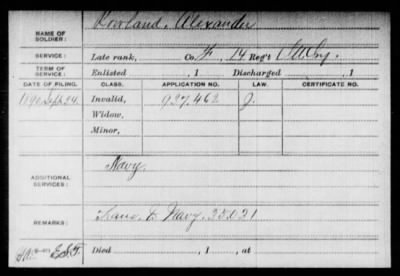 Rowland, Alexander
NAME OF SOLDIER:
SERVICE: Late rank, Co. F, 14 Reg't
TERM OF SERVICE: Enlisted , 1 Discharged , 1
DATE OF FILING. CLASS. APPLICATION NO. LAW. CERTIFICATE NO.
1890 Sept. 24. Invalid, 927.462 J.
Widow,
Minor,
ADDITIONAL SERVICES: Navy.
REMARKS: Trans. to Navy, 35021
Died , 1 , at